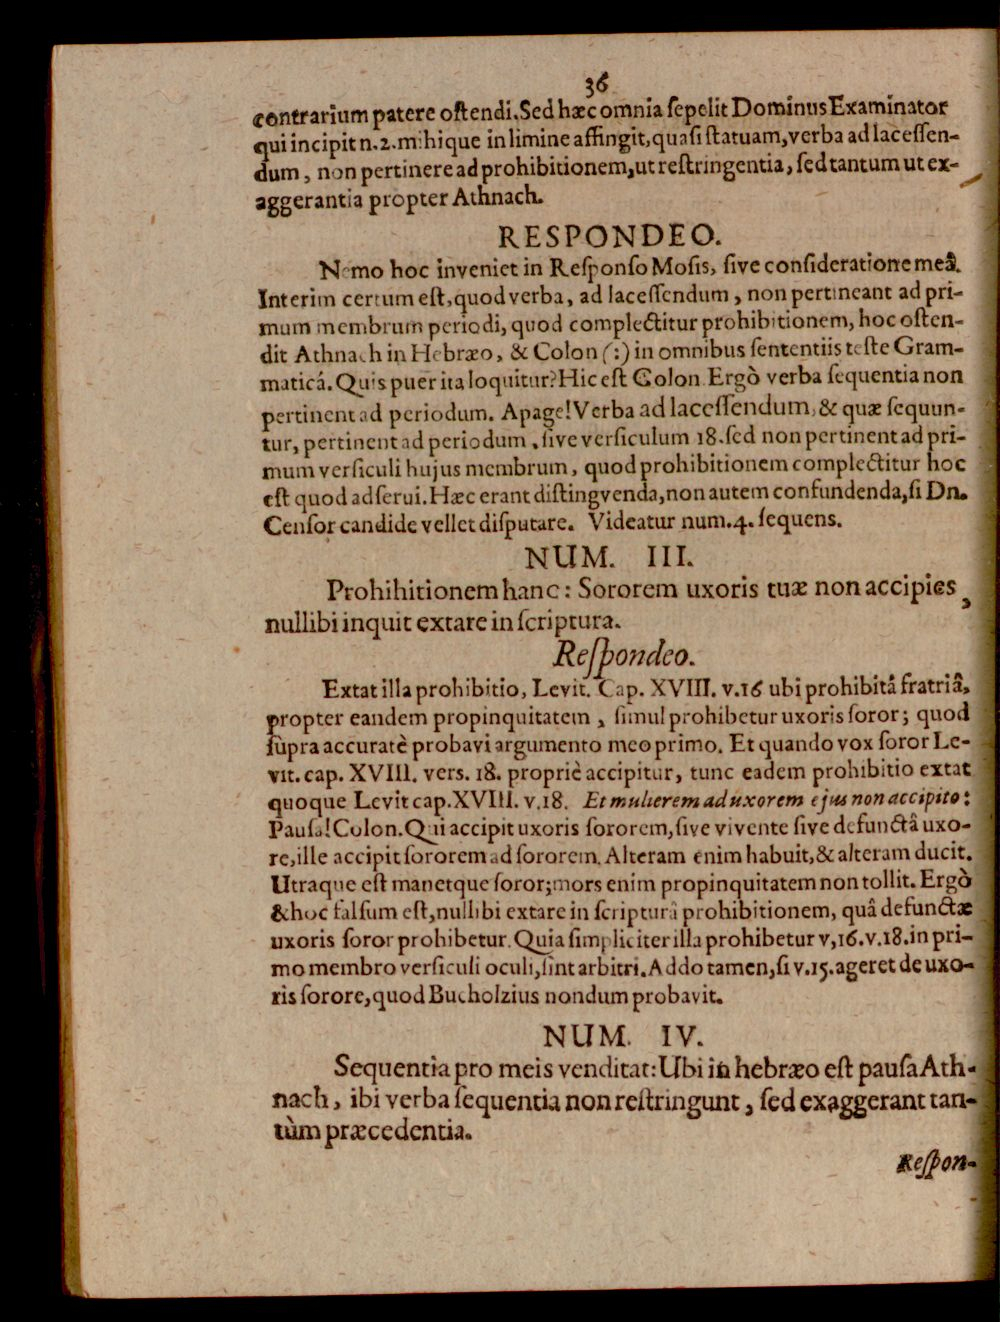 36
contrarium patere oſtendi. Sed hæc omnia ſepelit Dominus Examinator
qui incipit n. 2. mihique in limine affingit, quaſi ſtatuam, verba ad laceſſen-
dum, non pertinere ad prohibitionem, ut reſtringentia, ſed tantum ut ex-
aggerantia propter Athnach.
RESPONDEO.
Nemo hoc inveniet in Reſponſo Moſis, ſive conſideratione meâ.
Interim certum eſt, quod verba, ad laceſſendum, non pertineant ad pri-
mum membrum periodi, quod complectitur prohibitionem, hoc oſten-
dit Athnach in Hebræo, & Colon (:) in omnibus ſententiis teſte Gram-
maticâ. Quis puer ita loquitur? Hic eſt Colon Ergò verba ſequentia non
pertinent ad periodum. Apage! Verba ad laceſſendum, & quæ ſequun-
tur, pertinent ad periodum, ſive verſiculum 18. ſed non pertinent ad pri-
mum verſiculi hujus membrum, quod prohibitionem complectitur hoc
eſt quod adſerui. Hæc erant diſtingvenda, non autem confundenda, ſi Dn.
Cenſor candide vellet diſputare. Videatur num. 4. ſequens.
NUM. III.
Prohihitionem hanc: Sororem uxoris tuæ non accipies,
nullibi inquit extare in ſcriptura.
Reſpondeo.
Extat illa prohibitio, Levit. Cap. XVIII. v. 16 ubi prohibitâ fratriâ,
propter eandem propinquitatem, ſimul prohibetur uxoris ſoror; quod
ſupra accuratè probavi argumento meo primo. Et quando vox ſoror Le-
vit. cap. XVIII. vers. 18. propriè accipitur, tunc eadem prohibitio extat
quoque Levit cap. XVIII. v. 18. Et mulierem ad uxorem ejus non accipito:
Pauſa! Colon. Qui accipit uxoris ſororem, ſive vivente ſive defunctâ uxo-
re, ille accipit ſororem ad ſororem. Alteram enim habuit, & alteram ducit.
Utraque eſt manetque ſoror; mors enim propinquitatem non tollit. Ergò
& hoc falſum eſt, nullibi extare in ſcripturâ prohibitionem, quâ defunctæ
uxoris ſoror prohibetur. Quia ſimpliciter illa prohibetur v, 16. v. 18. in pri-
mo membro verſiculi oculi, ſint arbitri. Addo tamen, ſi v. 15. ageret de uxo-
ris ſorore, quod Bucholzius nondum probavit.
NUM. IV.
Sequentia pro meis venditat: Ubi in hebræo eſt pauſa Ath-
nach, ibi verba ſequentia non reſtringunt, ſed exaggerant tan-
tùm præcedentia.
Reſpon-